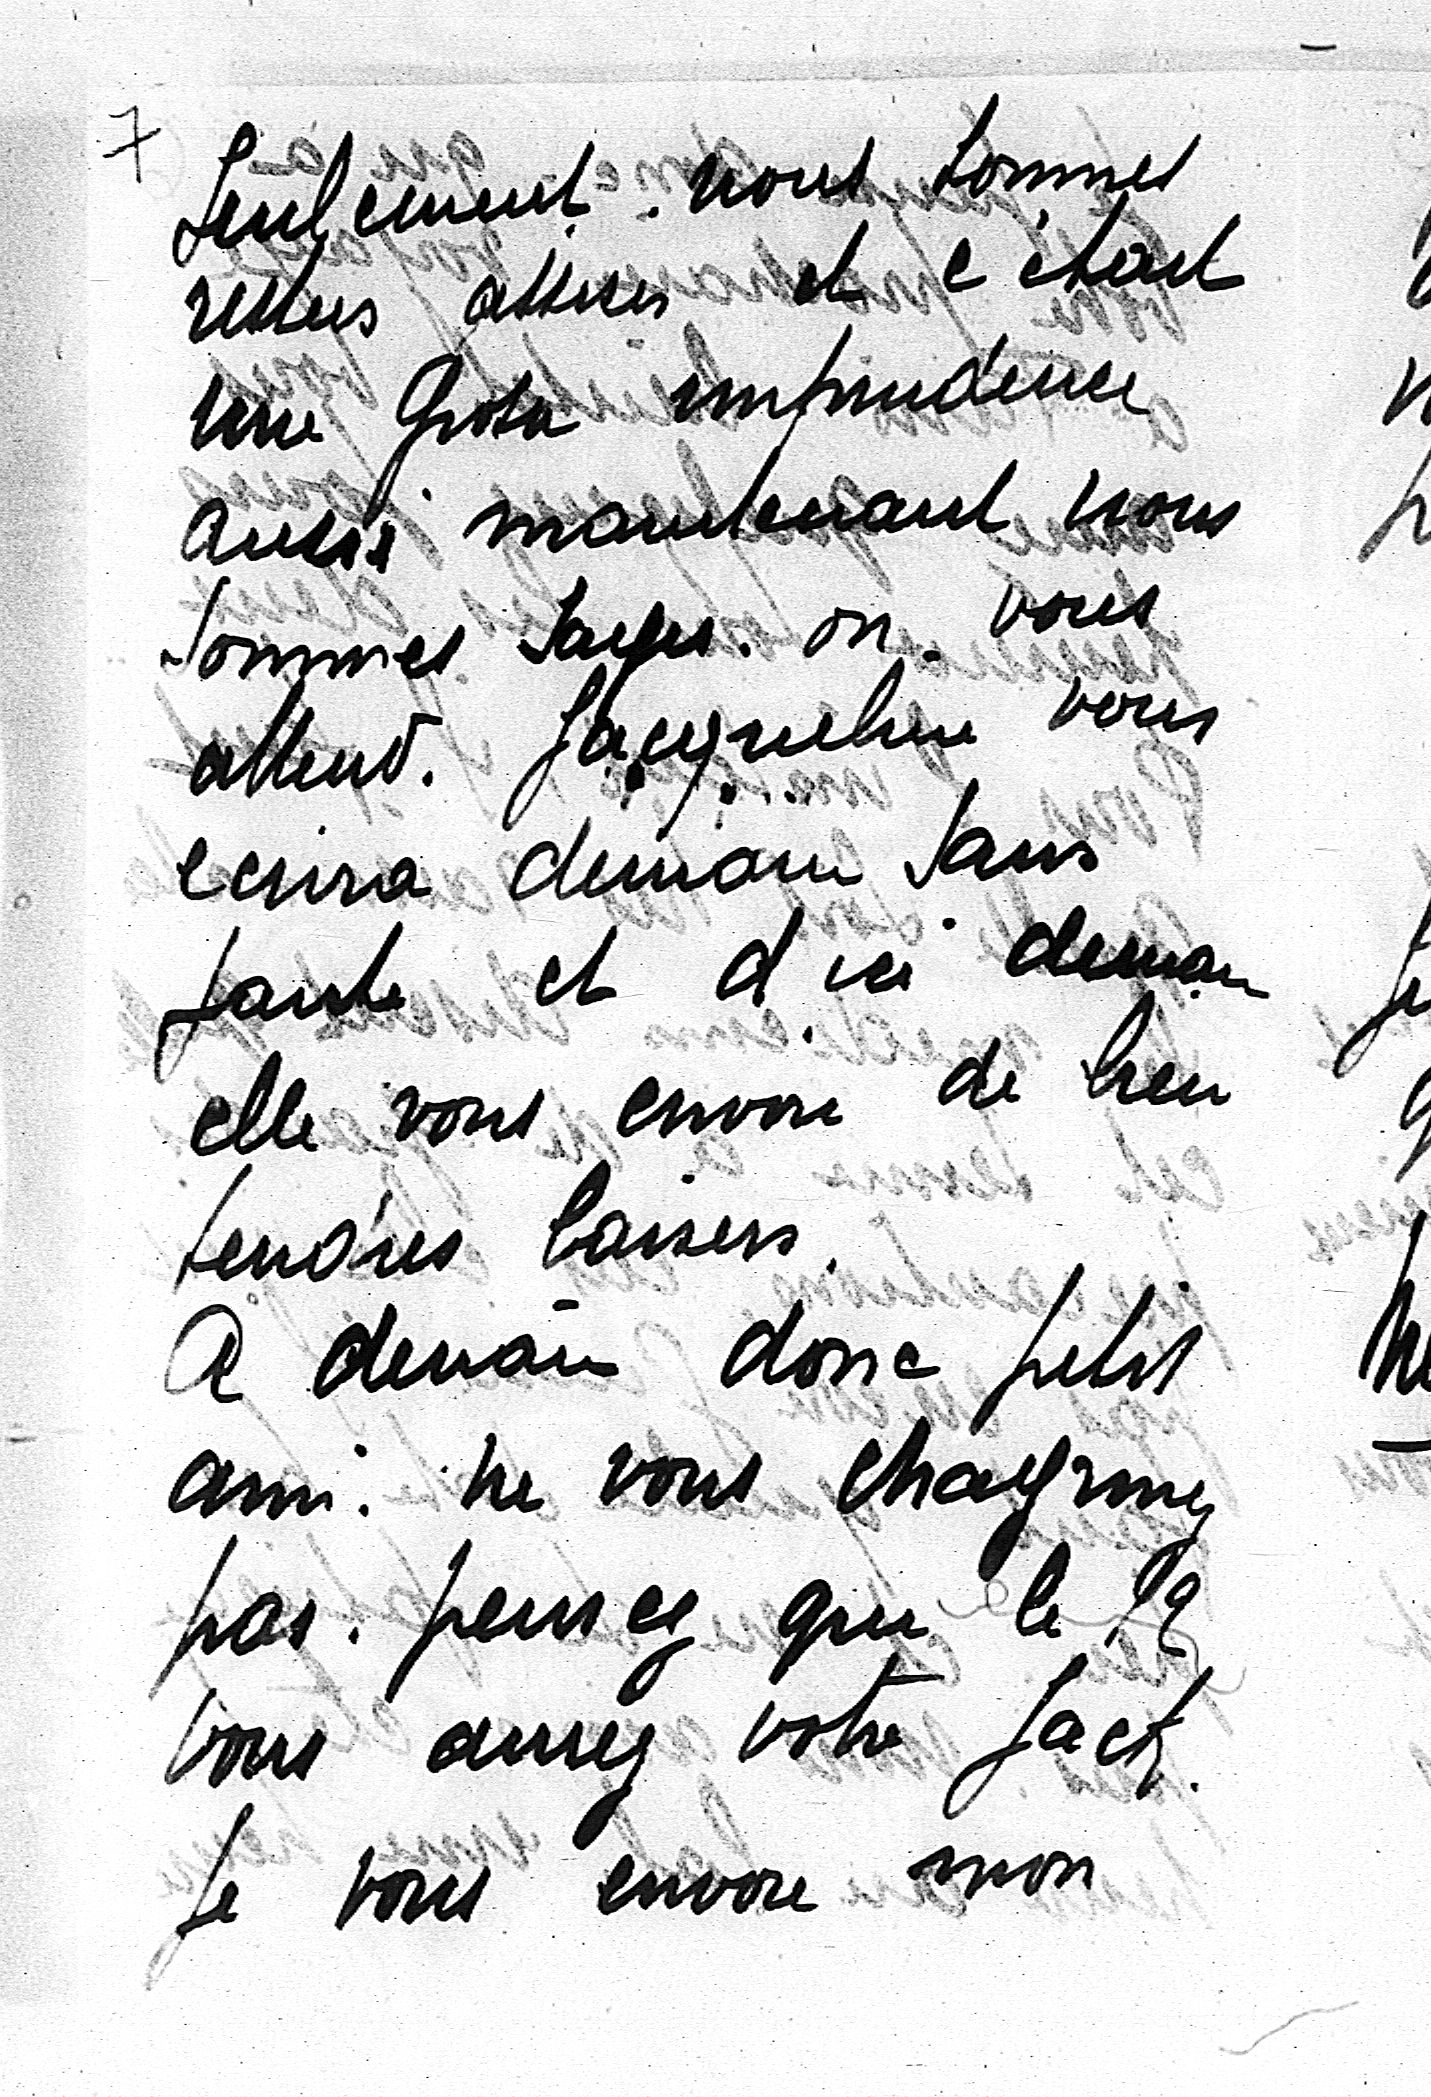 7
Seulement nous sommes
restées assises et c'était
une grosse imprudence
aussi maintenant nous
sommes sages. on vous
attend. Jacqueline vous
ecrira demain sans
faute et d'ici demain
elle vous envoie de bien
tendres baisers.
A demain donc petit
ami. ne vous chagrinez
pas. pensez que le 19
vous aurez votre Jacq.
Je vous envoie mon